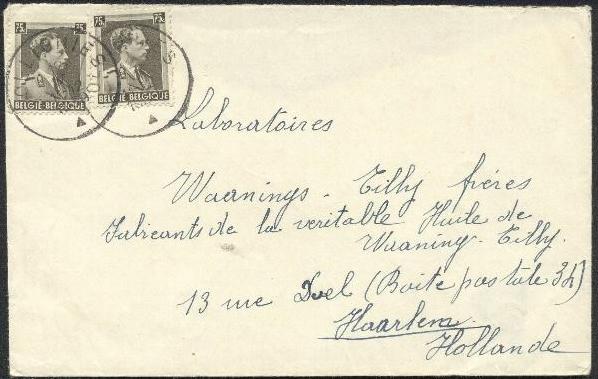 75c 75c
75c 75c
BELGIE-BELGIQUE BELGIE-BELGIQUE
Laboratoires
Waanings-Tilly frères
Fabricants de la veritable Huile de
Waaning-Tilly.
13 rue Duel (Boite postale 34)
Haarlem
Hollande